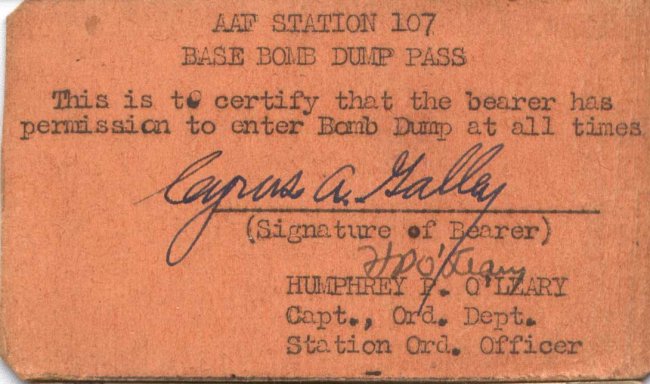 AAF STATION 107
BASE BOMB DUMP PASS
This is to certify that the bearer has
permission to enter Bomb Dump at all times
Cyrus A. Galley
(Signature of Bearer)
HPO'Leary
HUMPHREY P. O'LEARY
Capt., Ord. Dept.
Station Ord. Officer